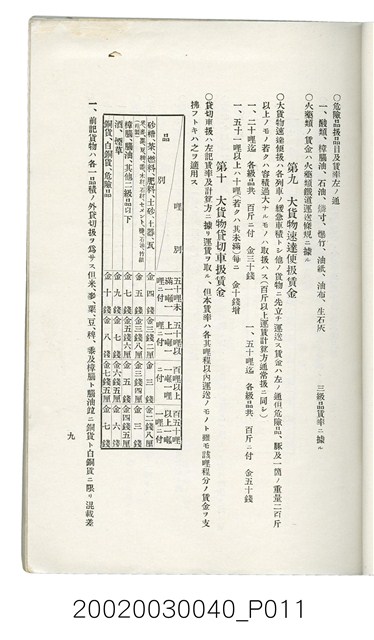 ○危險品扱品目及賃率左ノ通
一、酸類、樟腦油、石油、燐寸、爆竹、油紙、油布、生石灰 三級品賃率ニ據ル
○火藥類ノ賃金ハ火藥類鐵道運送條規ニ據ル
第九 大貨物速達便扱賃金
○大貨物速達便扱ハ各列車ノ緩急車積トシ他ノ貨物ニ先立チ運送ス賃金ハ左ノ通但危險品、豚及一箇ノ重量二百斤
以上ノモノ若クハ容積過大ナルモノハ取扱ハス(百斤以上運賃計算方通常扱ニ同シ)
一、二十哩迄 各級品共 百斤ニ付 金三十錢 一、五十哩迄 各級品共 百斤ニ付 金五十錢
一、五十一哩以上ハ十哩(若クハ其未滿)每ニ 金十錢增
第十 大貨物貸切車扱賃金
○貸切車扱ハ左記賃率及計算方ニ據リ運賃ヲ取ル 但本賃率ハ各其哩程以內運送ノモノト雖モ該哩程分ノ賃金ヲ支
拂フトキハ之ヲ適用ス
品 別 哩 別
五十哩未滿一噸一哩ニ付
五十哩以上一噸一哩ニ付
百哩以上一噸一哩ニ付
百五十哩以上一噸一哩ニ付
砂糖、茶、燃料、肥料、土砂、土器、瓦
金四錢 金三錢五厘 金三錢 金二錢八厘
金五錢 金三錢八厘 金三錢四厘 金三錢
樟腦、腦油、其他二級品以下
金七錢 金五錢六厘 金四錢五厘 金四錢
酒、煙草
金九錢 金七錢 金六錢五厘 金六錢
銅貨、白銅貨、危險品
金十錢 金八錢 金七錢五厘 金七錢
一、前記貨物ハ各一品積ノ外貸切扱ヲ爲サス但米、麥、粟、豆、稗、黍及樟腦ト腦油竝ニ銅貨ト白銅貨ニ限リ混載差
九
20020030040_P011